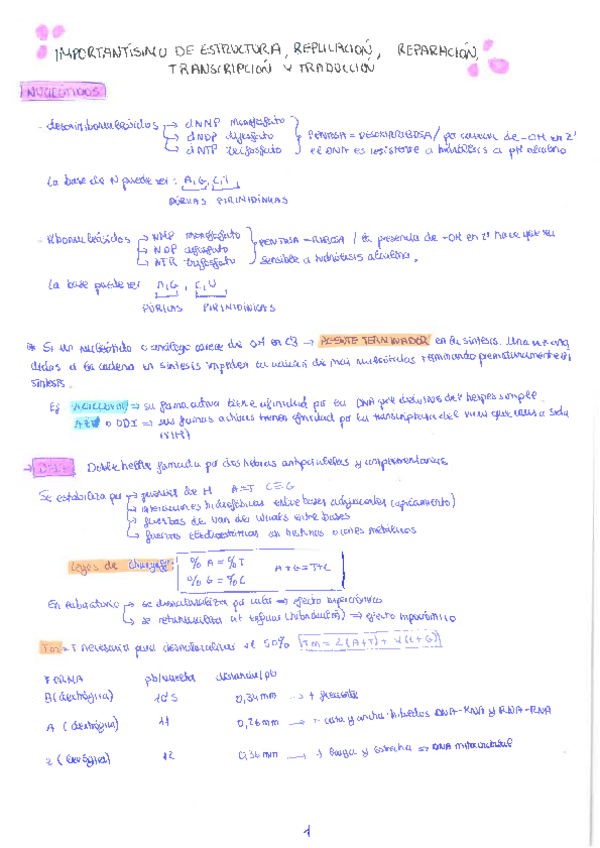 IMPORTANTÍSIMO DE ESTRUCTURA, REPLICACIÓN, REPARACIÓN,
TRANSCRIPCIÓN Y TRADUCCIÓN
NUCLEÓTIDOS
- desoxirribonucleósidos → dNMP monofosfato
→ dNDP difosfato
→ dNTP trifosfato
PENTOSA = DESOXIRRIBOSA / por carecer de -OH en 2'
el DNA es resistente a hidrólisis a pH alcalino
La base de N puede ser: A, G, C, T
PÚRICAS PIRIMIDÍNICAS
- Ribonucleósidos → NMP monofosfato
→ NDP difosfato
→ NTP trifosfato
PENTOSA = RIBOSA / la presencia de -OH en 2' hace que sea
sensible a hidrólisis alcalina.
La base puede ser A, G, C, U
PÚRICAS PIRIMIDÍNICAS
* Si un nucleótido o análogo carece de OH en C3 → AGENTE TERMINADOR en la síntesis. Una vez
a la cadena en síntesis impiden la adición de más nucleótidos terminando prematuramente la
síntesis.
Ej ACICLOVIR ⇒ su forma activa tiene afinidad por la DNA del herpes simple
AZT o DDI ⇒ sus formas activas tienen afinidad por la transcriptasa del virus que causa sida
(VIH)
Doble hélice formada por dos hebras antiparalelas y complementarias
Se estabiliza por → puentes de H A=T C≡G
→ interacciones hidrofóbicas entre bases adyacentes (apilamiento)
→ fuerzas de van der Waals entre bases
→ fuerzas electrostáticas con histonas o iones metálicos
Leyes de Chargaff:
% A = % T
% G = % C
A + G = T + C
En laboratorio → se desnaturaliza por calor ⇒ efecto hipercrómico
→ se renaturaliza al enfriar (hibridación) ⇒ efecto hipocrómico
Tm = T necesaria para desnaturalizar el 50% Tm = 2(A+T) + 4(C+G)
FORMA pb/vuelta distancia/pb
B (dextrógira) 10'5 0,34 mm → + frecuente
A (dextrógira) 11 0,26 mm → + corta y ancha. híbridos DNA-RNA y RNA-RNA
Z (levógira) 12 0,36 mm → + larga y estrecha ⇒ DNA
1